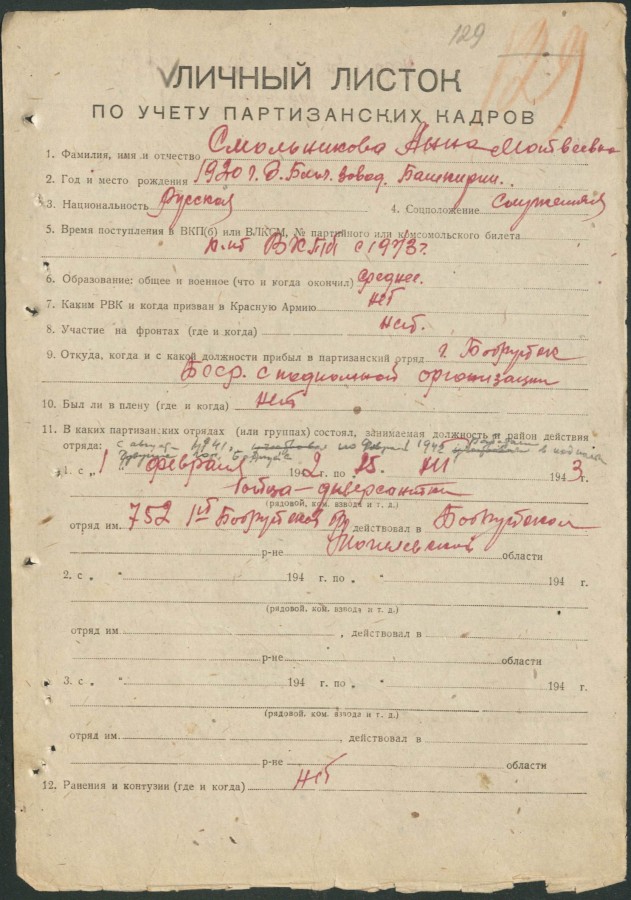 129
129
ЛИЧНЫЙ ЛИСТОК
ПО УЧЕТУ ПАРТИЗАНСКИХ КАДРОВ
1. Фамилия, имя и отчество Смольникова Анна Матвеевна
2. Год и место рождения 1920 г. д. Бел. завод, Башкирии.
3. Национальность Русская 4. Соцположение Служащая
5. Время поступления в ВКП(б) или ВЛКСМ, № партийного или комсомольского билета
с 1943 г.
6. Образование: общее и военное (что и когда окончил) среднее.
7. Каким РВК и когда призван в Красную Армию нет
8. Участие на фронтах (где и когда) нет.
9. Откуда, когда и с какой должности прибыл в партизанский отряд г. Бобруйск
БССР. с подпольной организации
10. Был ли в плену (где и когда) нет
11. В каких партизанских отрядах (или группах) состоял, занимаемая должность и район действия
отряда: с август 1941, по феврал 1942
1. с „1 " февраля 1942 г. по 25. III 1943 г.
бойца-диверсантки
(рядовой, ком. взвода и т. д.)
отряд им. 752 1й Бобруйской действовал в Бобруйском
р-не Могилевской области
2. с „ " 194 г. по „ " 194 г.
(рядовой, ком. взвода и т. д.)
отряд им , действовал в
р-не области
3. с „ " 194 г. по „ " 194 г.
(рядовой, ком. взвода и т. д.)
отряд им. , действовал в
р-не области
12. Ранения и контузии (где и когда) нет